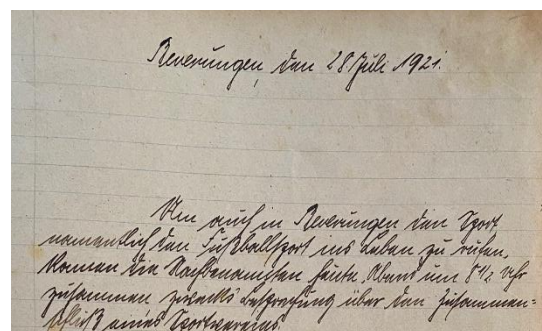 Beverungen, den 28. Juli 1921.
Um auch in Beverungen den Sport
namentlich den Fußballsport ins Leben zu rufen,
kamen die Nachbenannten heute Abend um 8 1/2 Uhr
zusammen zwecks Besprechung über den Zusammen=
schluß eines Sportvereins